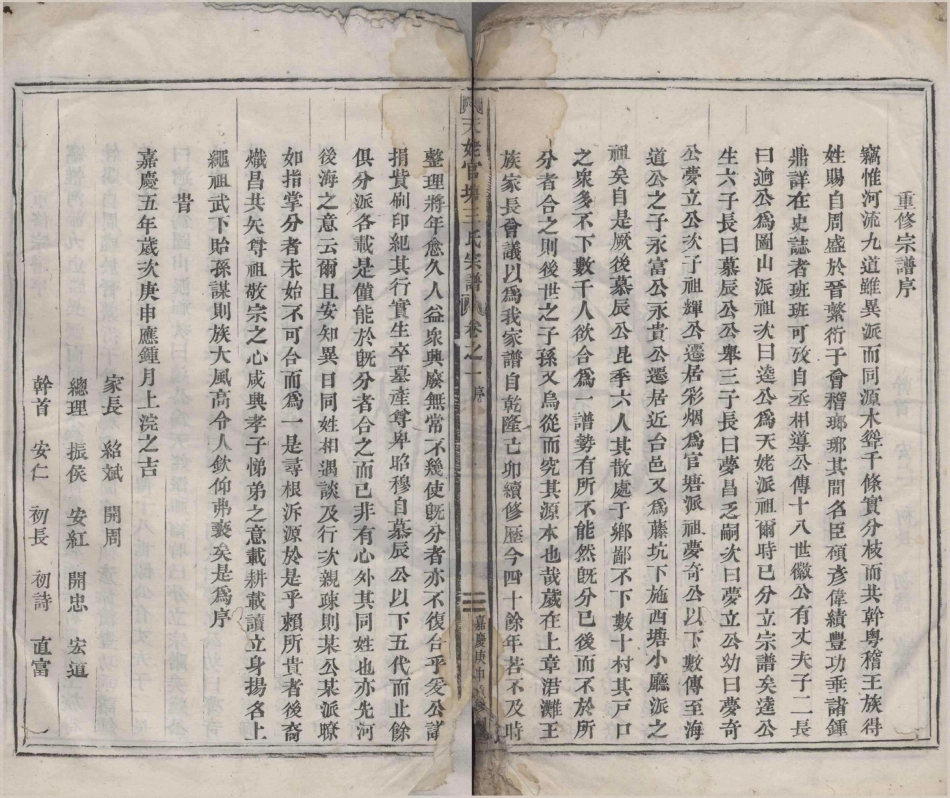 重修宗譜序
竊惟河流九道雖異派而同源木聳千條實分枝而共幹粤稽王族得
姓賜自周盛於晉蘩衍于會稽瑯琊其間名臣碩彥偉績豐功垂諸鍾
鼎詳在史誌者班班可攷自丞相導公傳十八世徽公有丈夫子二長
曰逈公爲圖山派祖次曰逵公爲天姥派祖爾時已分立宗譜矣逵公
生六子長曰慕辰公公舉三子長曰夢昌乏嗣次曰夢立公幼曰夢奇
公夢立公次子祖輝公遷居彩烟爲官塘派祖夢奇公以下數傳至海
道公之子永富公永貴公遷居近台邑又爲藤坑下施西塘小廳派之
祖矣自是厥後慕辰公昆季六人其散處于鄉鄙不下數十村其戸口
之衆多不下數千人欲合爲一譜勢有所不能然既分已後而不於所
分者合之則後世之子孫又烏從而究其源本也哉歲在上章涒灘王
族家長會議以爲我家譜自乾隆己卯續修歷今四十餘年若不及時
天姥官塘王氏宗譜 卷之一 序 二 嘉慶庚申
整理將年愈久人益衆興廢無常不幾使既分者亦不復合乎爰公議
捐貲刷印紀其行實生卒墓產尊卑昭穆自慕辰公以下五代而止餘
俱分派各載是僅能於既分者合之而已非有心外其同姓也亦先河
後海之意云爾且安知異日同姓相遇談及行次親疎則某公某派瞭
如指掌分者未始不可合而爲一是尋根泝源於是乎賴所貴者後裔
熾昌共矢尊祖敬宗之心咸興孝子悌弟之意載耕載讀立身揚名上
繩祖武下貽孫謀則族大風高令人欽仰弗衰矣是爲序
旹
嘉慶五年歲次庚申應鍾月上浣之吉
家長 紹斌 開周
總理 振侯 安紅 開忠 宏道
幹首 安仁 初長 初詩 直富